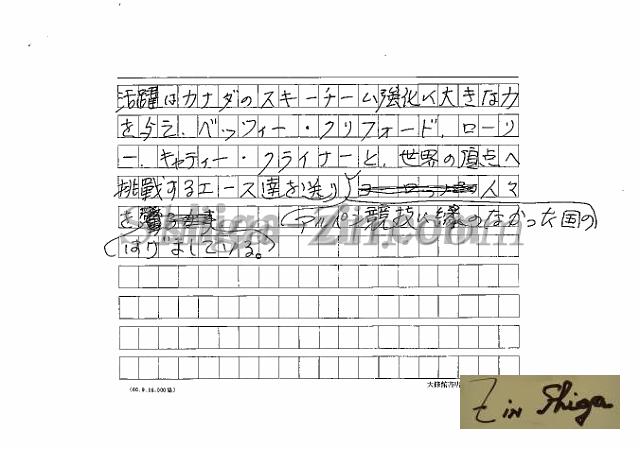 活躍はカナダのスキーチーム強化に大きな力
を与え、ベッツィー・クリフォード、ローリ
ー、キャティー・クライナーと、世界の頂点へ
挑戦するエース達を送り 人々
を
アルペン競技に縁のなかった国の
はげましている。
shiga zin.com
(60.9.25,000集)
大修館書
Z in Shiga